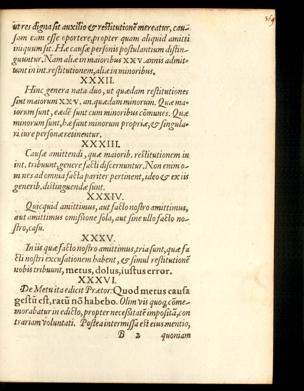 ut res digna sit auxilio & restitutione mereatur, cau-
sam eam esse oportere, propter quam aliquid amitti
iniquum sit. Hæ causæ personis postulantium distin-
guuntur. Nam aliæ in maioribus XXV. annis admit-
tunt in int. restitutionem, aliæ in minoribus.
XXXII.
Hinc genera nata duo, ut quædam restitutiones
sint maiorum XXV. an. quædam minorum. Quæ ma-
iorum sunt, eædẽ sunt cum minoribus cõmunes. Quæ
minorum sunt, hæ sunt minorum propriæ, & singula-
ri iure personæ retinentur.
XXXIII.
Causæ amittendi, quæ maiorib. restitutionem in
int. tribuunt, genere facti discernuntur. Non enim o-
mnes ad omnia facta pariter pertinent, ideo & ex iis
generib. distinguendæ sunt.
XXXIV.
Quicquid amittimus, aut facto nostro amittimus,
aut amittimus omissione sola, aut sine ullo facto no-
stro, casu.
XXXV.
In iis quæ facto nostro amittimus, tria sunt, quæ fa-
cti nostri excusationem habent, & simul restitutionẽ
nobis tribuunt, metus, dolus, iustus error.
XXXVI.
De Metu ita edicit Prætor: Quod metus causa
gestũ est, ratũ nõ habebo. Olim vis quoq; cõme-
morabatur in edicto, propter necessitatẽ impositã, con
trariam voluntati. Postea intermissa est eius mentio,
B 2 quoniam